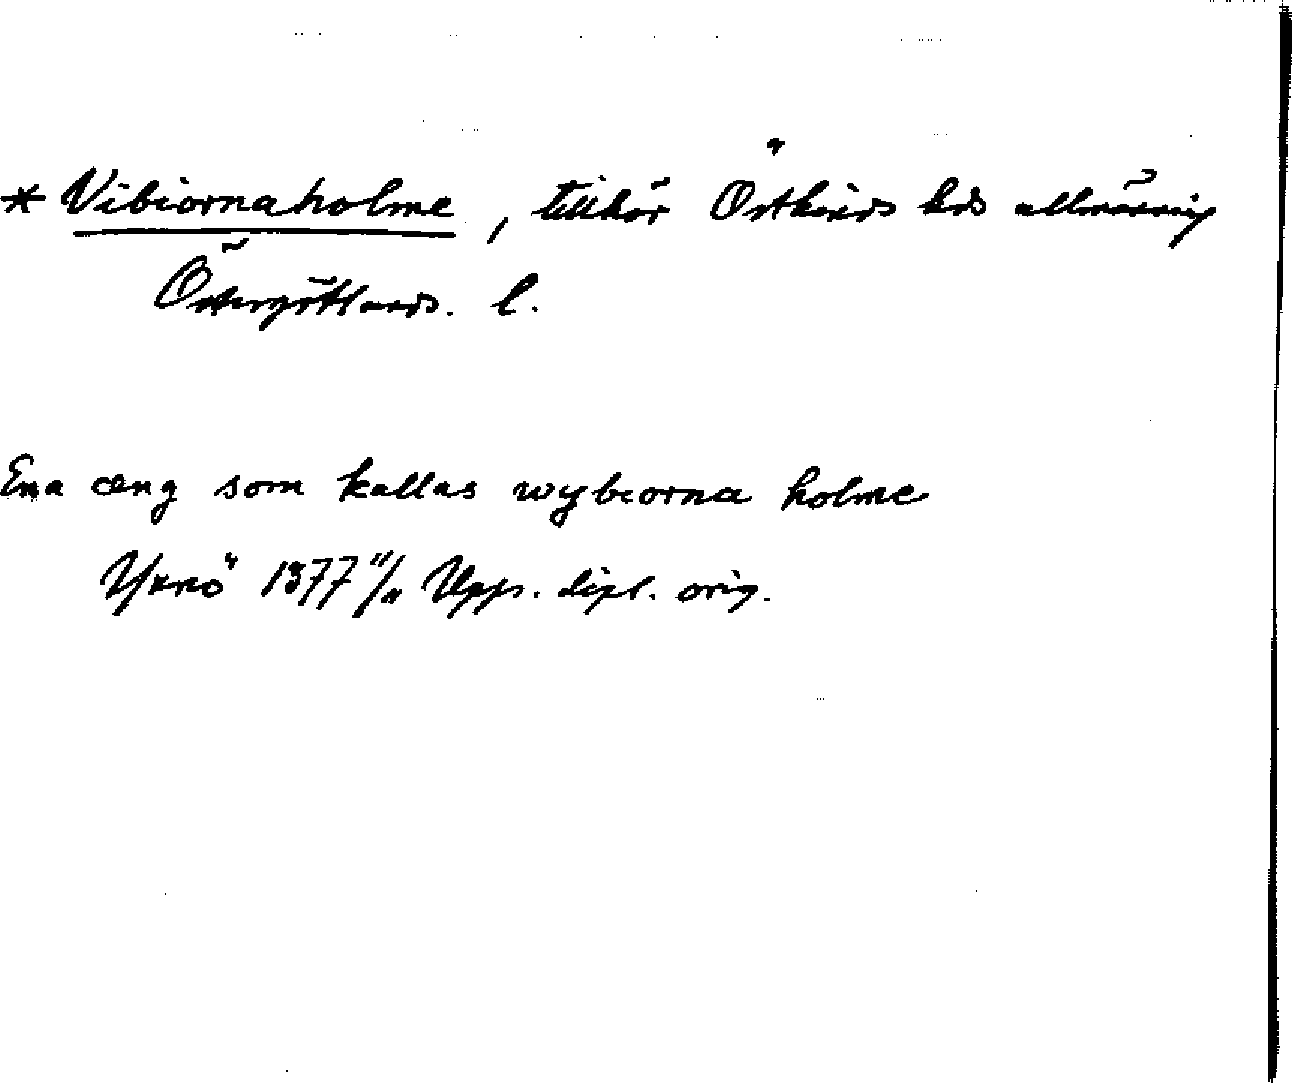 * Vibiornaholme, tillhör Östkinds hds allmänning
Östergötlands. l.
Ena æng som kallas wybiorna holme
Yxnö 1377 11/11 Upps. dipl. orig.